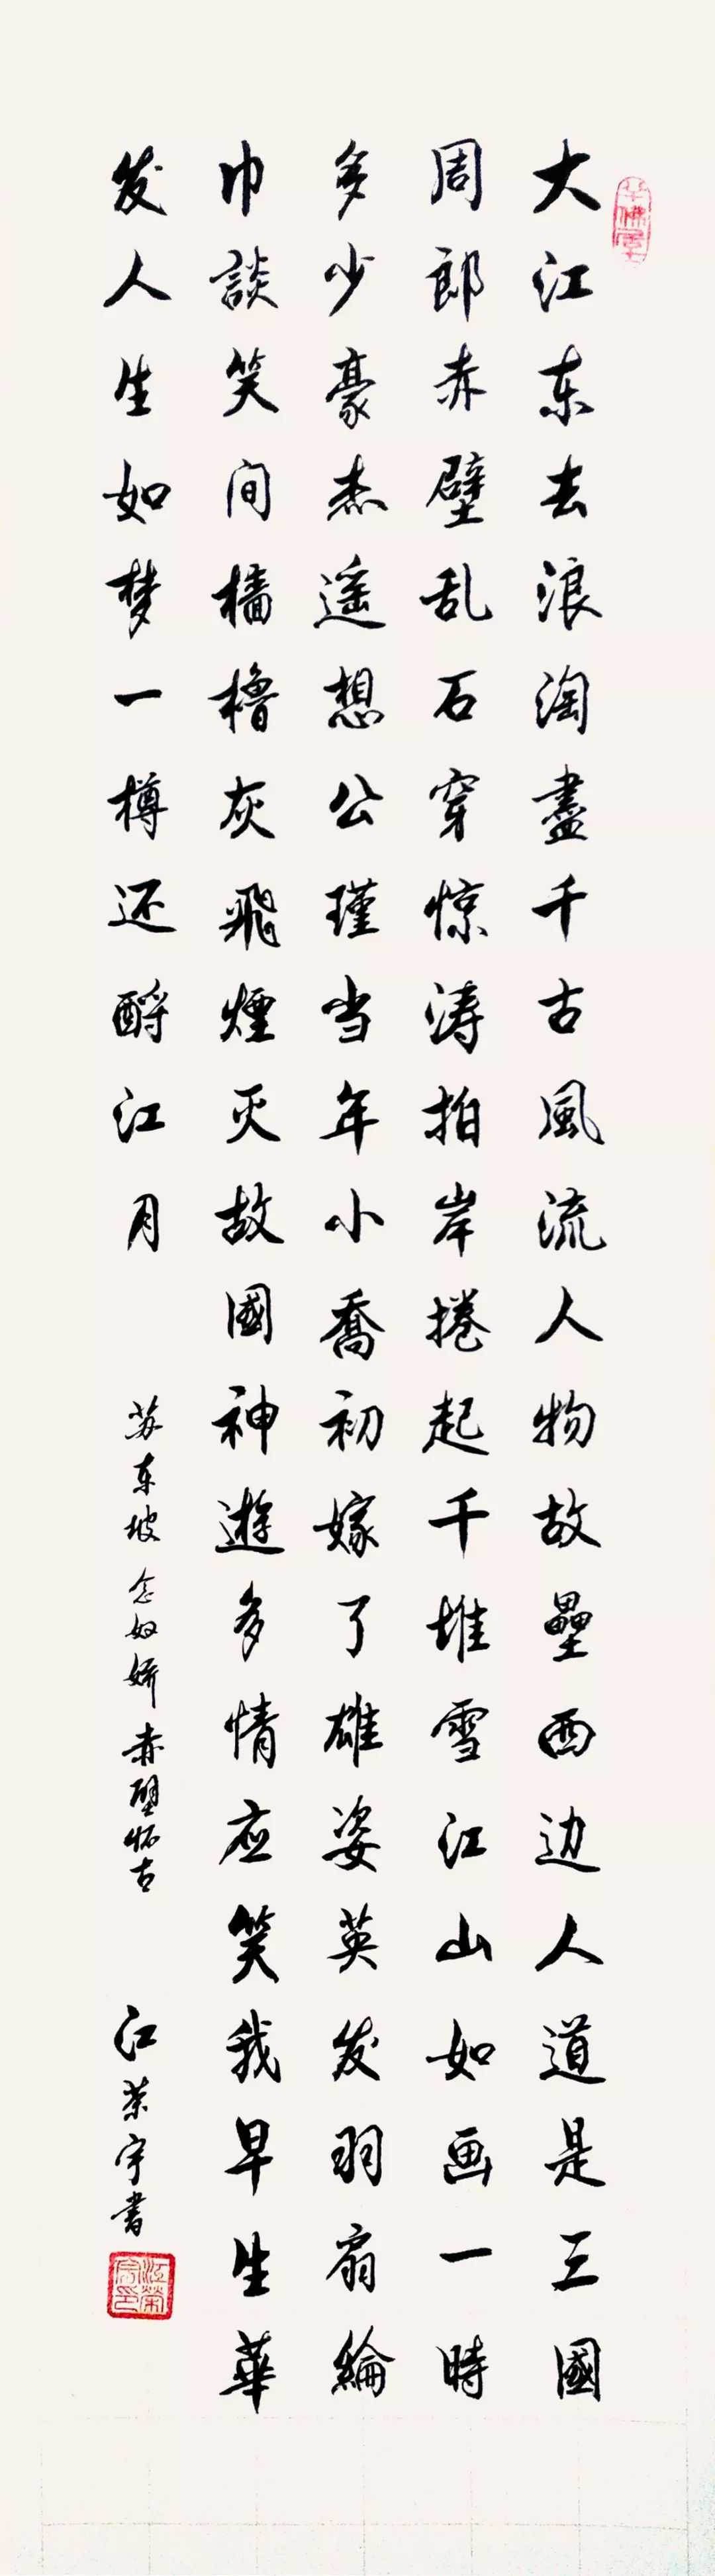 大江东去浪淘盡千古風流人物故壘西边人道是三國
周郎赤壁乱石穿惊涛拍岸捲起千堆雪江山如画一時
多少豪杰遥想公瑾当年小喬初嫁了雄姿英发羽扇綸
巾談笑间檣橹灰飛煙灭故國神遊多情应笑我早生華
发人生如梦一樽还酹江月
苏东坡念奴娇赤壁怀古
江荣宇書
江荣宇印